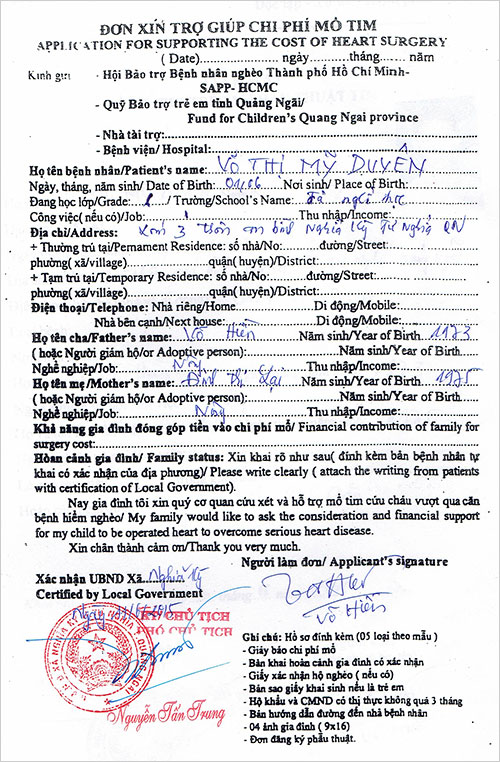 ĐƠN XIN TRỢ GIÚP CHI PHÍ MỔ TIM
APPLICATION FOR SUPPORTING THE COST OF HEART SURGERY
( Date)....................ngày............tháng....... năm
Kính gửi - Hội Bảo trợ Bệnh nhân nghèo Thành phố Hồ Chí Minh-
SAPP- HCMC
- Quỹ Bảo trợ trẻ em tỉnh Quảng Ngãi/
Fund for Children's Quang Ngai province
- Nhà tài trợ:
- Bệnh viện/ Hospital:
Họ tên bệnh nhân/Patient's name: VÕ THỊ MỸ DUYÊN
Ngày, tháng, năm sinh/ Date of Birth: Nơi sinh/ Place of Birth:
Đang học lớp/Grade: / Trường/School's Name:
Công việc( nếu có)/Job: Thu nhập/Income:
Địa chỉ/Address: Xóm 3 Thôn An bình Nghĩa Kỳ Tư Nghĩa QN
+ Thường trú tại/Pernament Residence: số nhà/No: đường/Street:
phường( xã/village) quận( huyện)/District:
+ Tạm trú tại/Temporary Residence: số nhà/No: đường/Street:
phường( xã/village) quận( huyện)/District:
Điện thoại/Telephone: Nhà riêng/Home Di động/Mobile:
Nhà bên cạnh/Next house: Di động/Mobile:
Họ tên cha/Father's name: Võ Hiền Năm sinh/Year of Birth 1973
( hoặc Người giám hộ/or Adoptive person): Năm sinh/Year of Birth
Nghề nghiệp/Job: Nông Thu nhập/Income:
Họ tên mẹ/Mother's name: Đinh thị Năm sinh/Year of Birth 1975
( hoặc Người giám hộ/or Adoptive person): Năm sinh/Year of Birth
Nghề nghiệp/Job: Nông Thu nhập/Income:
Khả năng gia đình đóng góp tiền vào chi phí mổ/ Financial contribution of family for
surgery cost:
Hoàn cảnh gia đình/ Family status: Xin khai rõ như sau( đính kèm bản bệnh nhân tự
khai có xác nhận của địa phương)/ Please write clearly ( attach the writing from patients
with certification of Local Government).
Nay gia đình tôi xin quý cơ quan cứu xét và hỗ trợ mổ tim cứu cháu vượt qua căn
bệnh hiểm nghèo/ My family would like to ask the consideration and financial support
for my child to be operated heart to overcome serious heart disease.
Xin chân thành cảm ơn/Thank you very much.
Người làm đơn/ Applicant's signature
Xác nhận UBND Xã Nghĩa Kỳ
Certified by Local Government
Võ Hiền
KT.CHỦ TỊCH
PHÓ CHỦ TỊCH
Nguyễn Tấn Trung
Ghi chú: Hồ sơ đính kèm (05 loại theo mẫu )
- Giấy báo chi phí mổ
- Bản khai hoàn cảnh gia đình có xác nhận
- Giấy xác nhận hộ nghèo ( nếu có)
- Bản sao giấy khai sinh nếu là trẻ em
- Hộ khẩu và CMND có thị thực không quá 3 tháng
- Bản hướng dẫn đường đến nhà bệnh nhân
- 04 ảnh gia đình ( 9x16)
- Đơn đăng ký phẫu thuật.